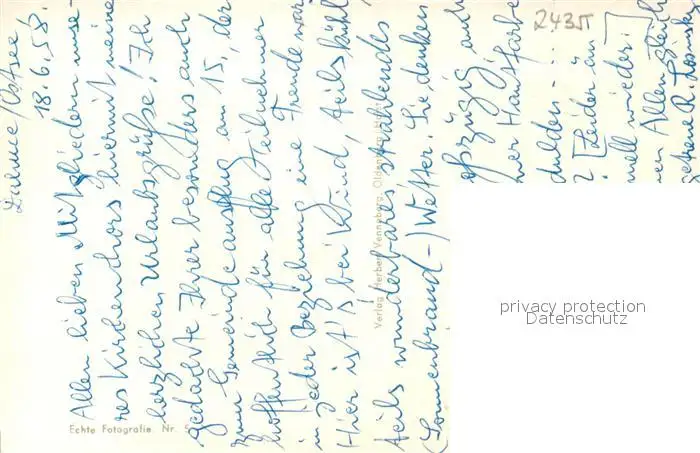 Dahme/Ostsee,
18.6.58.
Allen lieben Mitgliedern unse-
res Kirchenchors hiermit meine
herzlichen Urlaubsgrüße! Ich
gedachte Ihrer besonders auch
zum Gemeindeausflug am 15., der
hoffentlich für alle Teilnehmer
in jeder Beziehung eine Freude war.
Hier ist's bei Wind, teils kühl,
teils wunderbares strahlendes
(Sonnenbrand-) Wetter. Sie denken
oßzügig auch
ner Hautfarbe
dulden -...
? [Leider
nell wieder!]
nen Allen zugleich
getreue R.
2435
Echte Fotografie Nr. 5
Verlag Herbert Venneberg, Oldenburg
privacy protection
Datenschutz